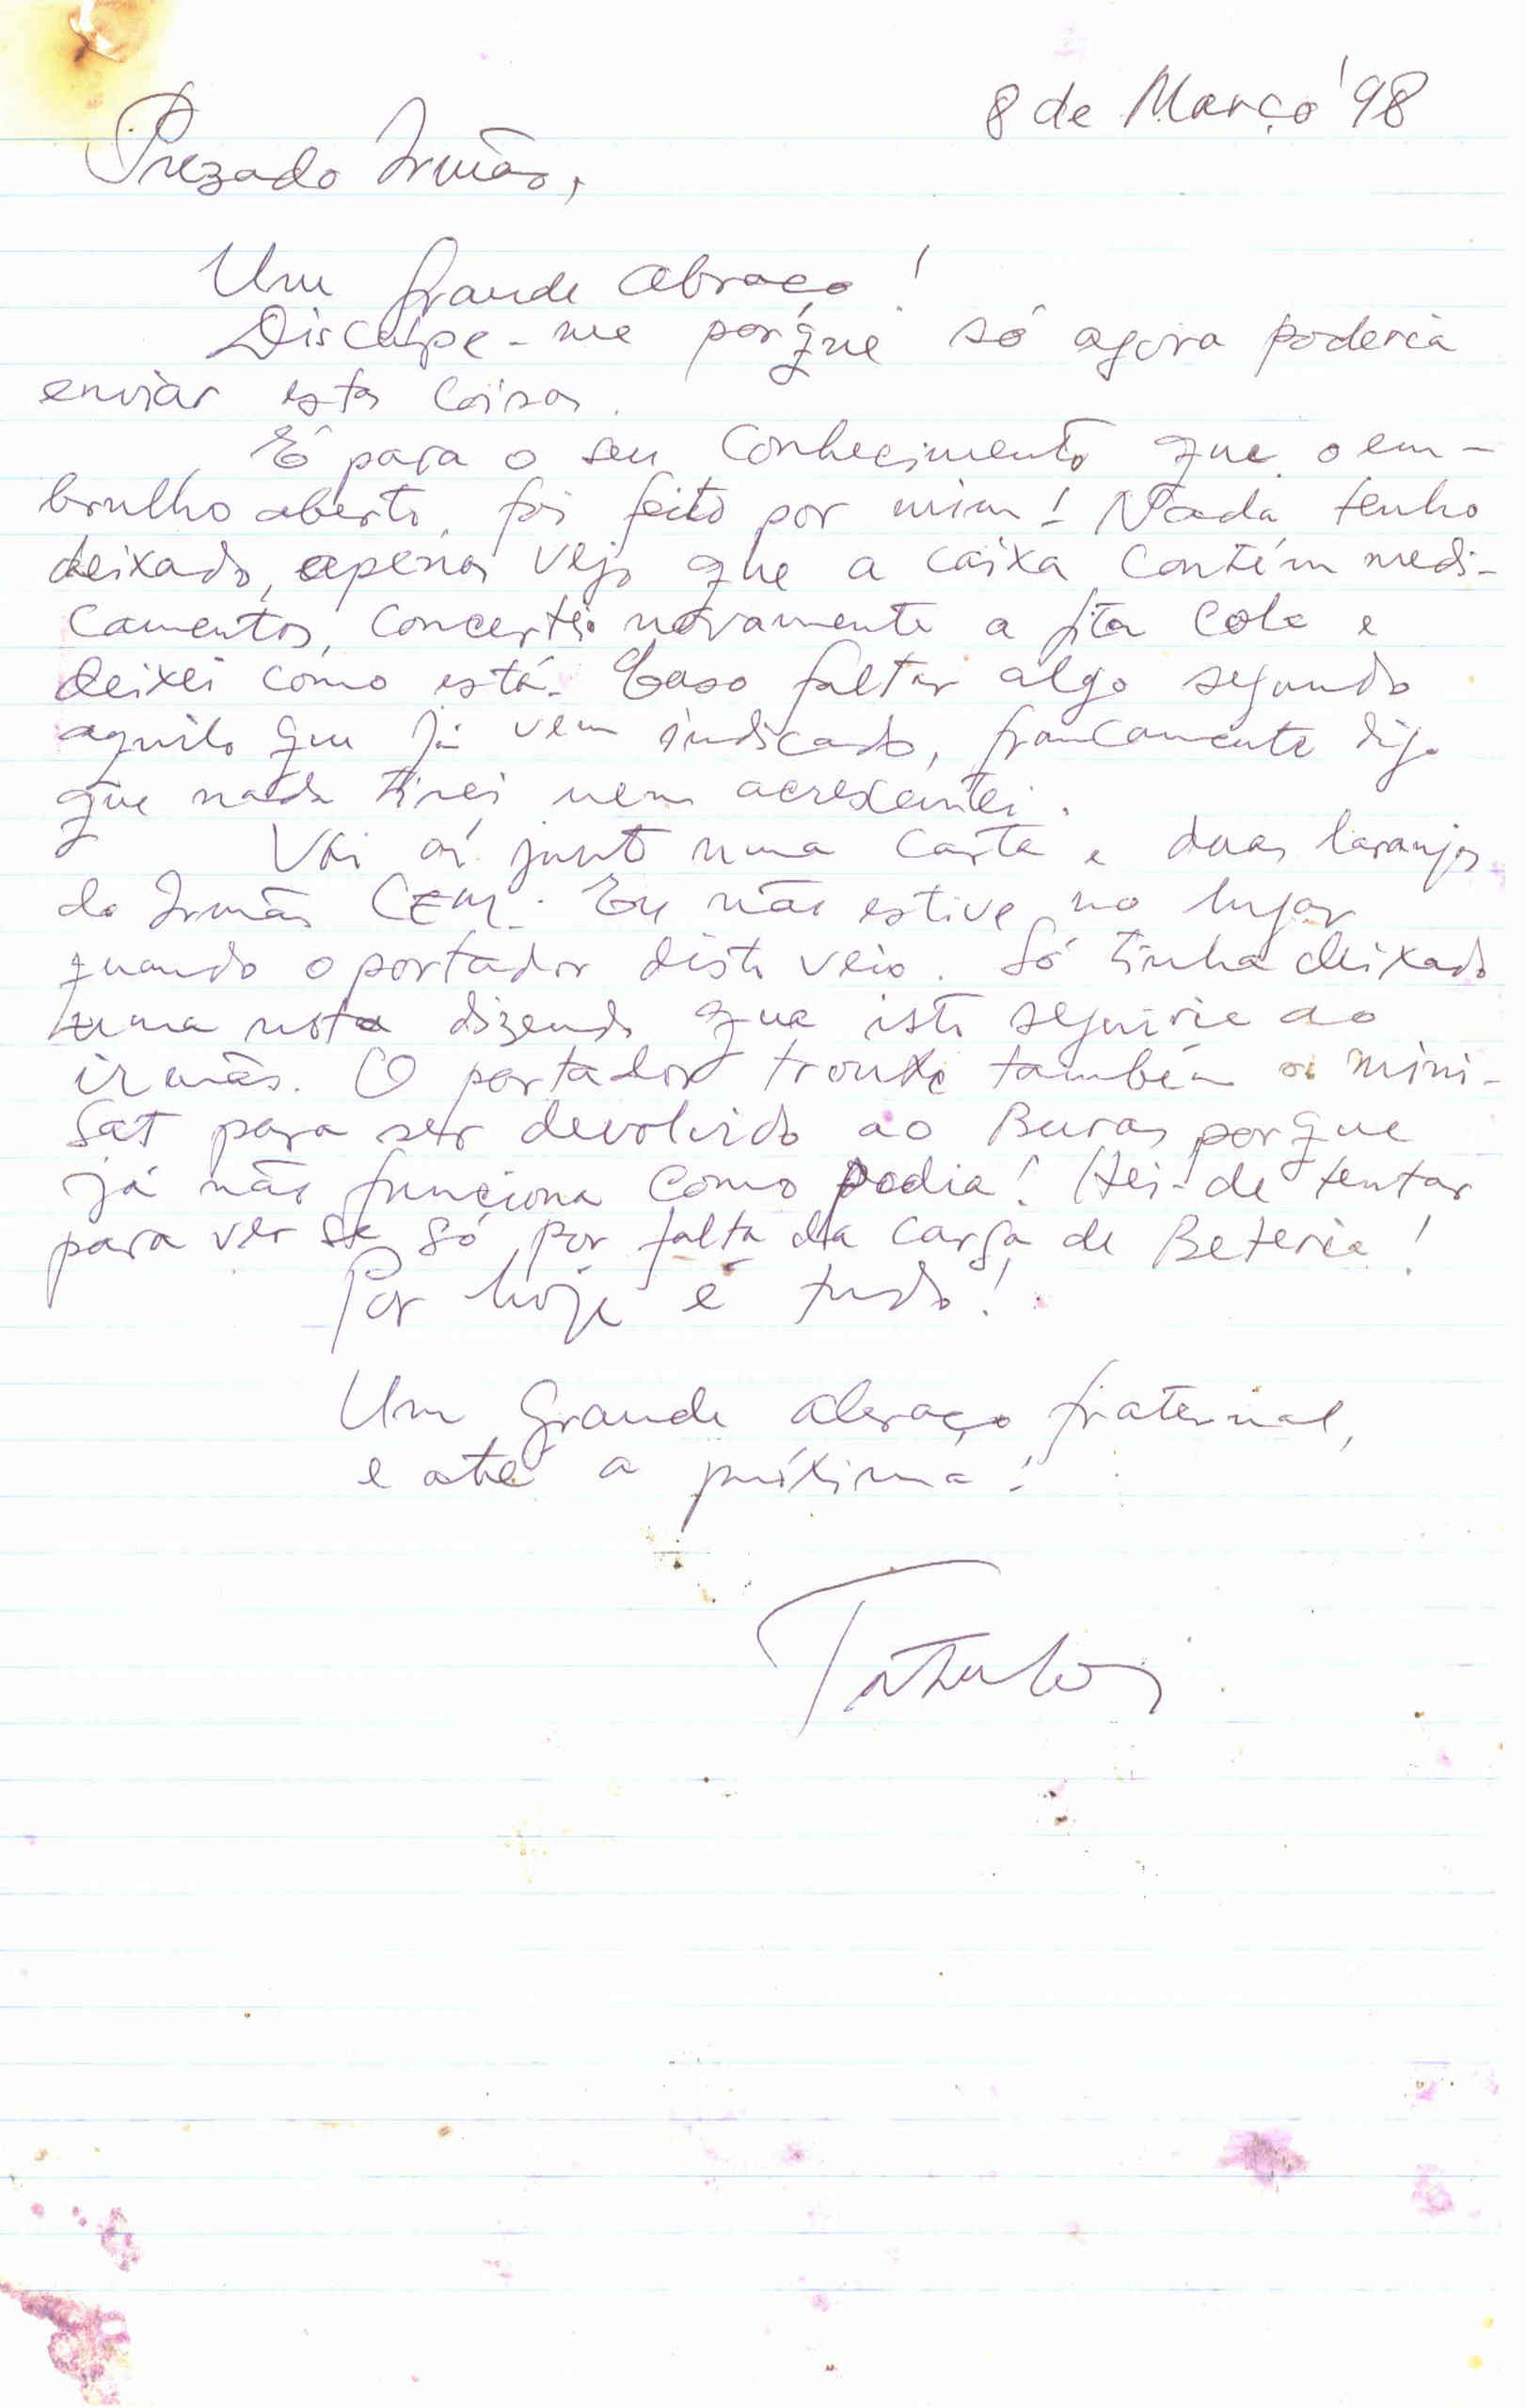 8 de Março '98
Prezado Irmão,
Um grande abraço!
Disculpe-me porque só agora poderia
enviar estas coisas.
É para o seu conhecimento que o em-
brulho aberto, foi feito por mim! Nada tenho
deixado, apenas vejo que a caixa contém medi-
camentos, concertei novamente a fita cola e
deixei como está. Caso faltar algo segundo
aquilo que já vem indicado, francamente digo
que nada tirei nem acrexentei.
Vai aí junto uma carta e duas laranjas
do Irmão CEM. Eu não estive no lugar
quando o portador disto veio. Só tinha deixado
uma nota dizendo que isto seguiria ao
irmão. O portador trouxe também o mini-
Sat para ser devolvido ao Buras porque
já não funciona como podia! Hei-de tentar
para ver se só por falta da carga de Beteria!
Por hoje é tudo!
Um grande abraço fraternal,
e até a próxima!